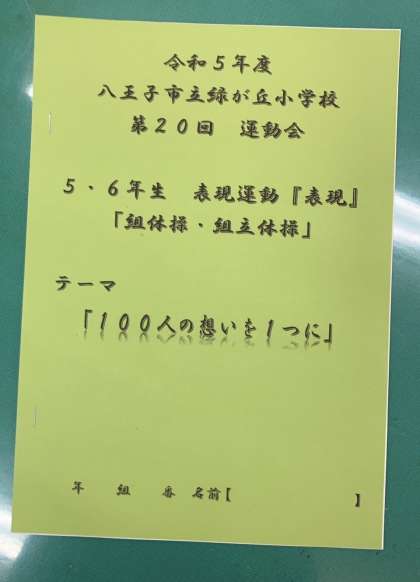 令和５年度
八王子市立緑が丘小学校
第２０回　運動会
５・６年生　表現運動『表現』
「組体操・組立体操」
テーマ
「１００人の想いを１つに」
年　組　番　名前【　　　　　】